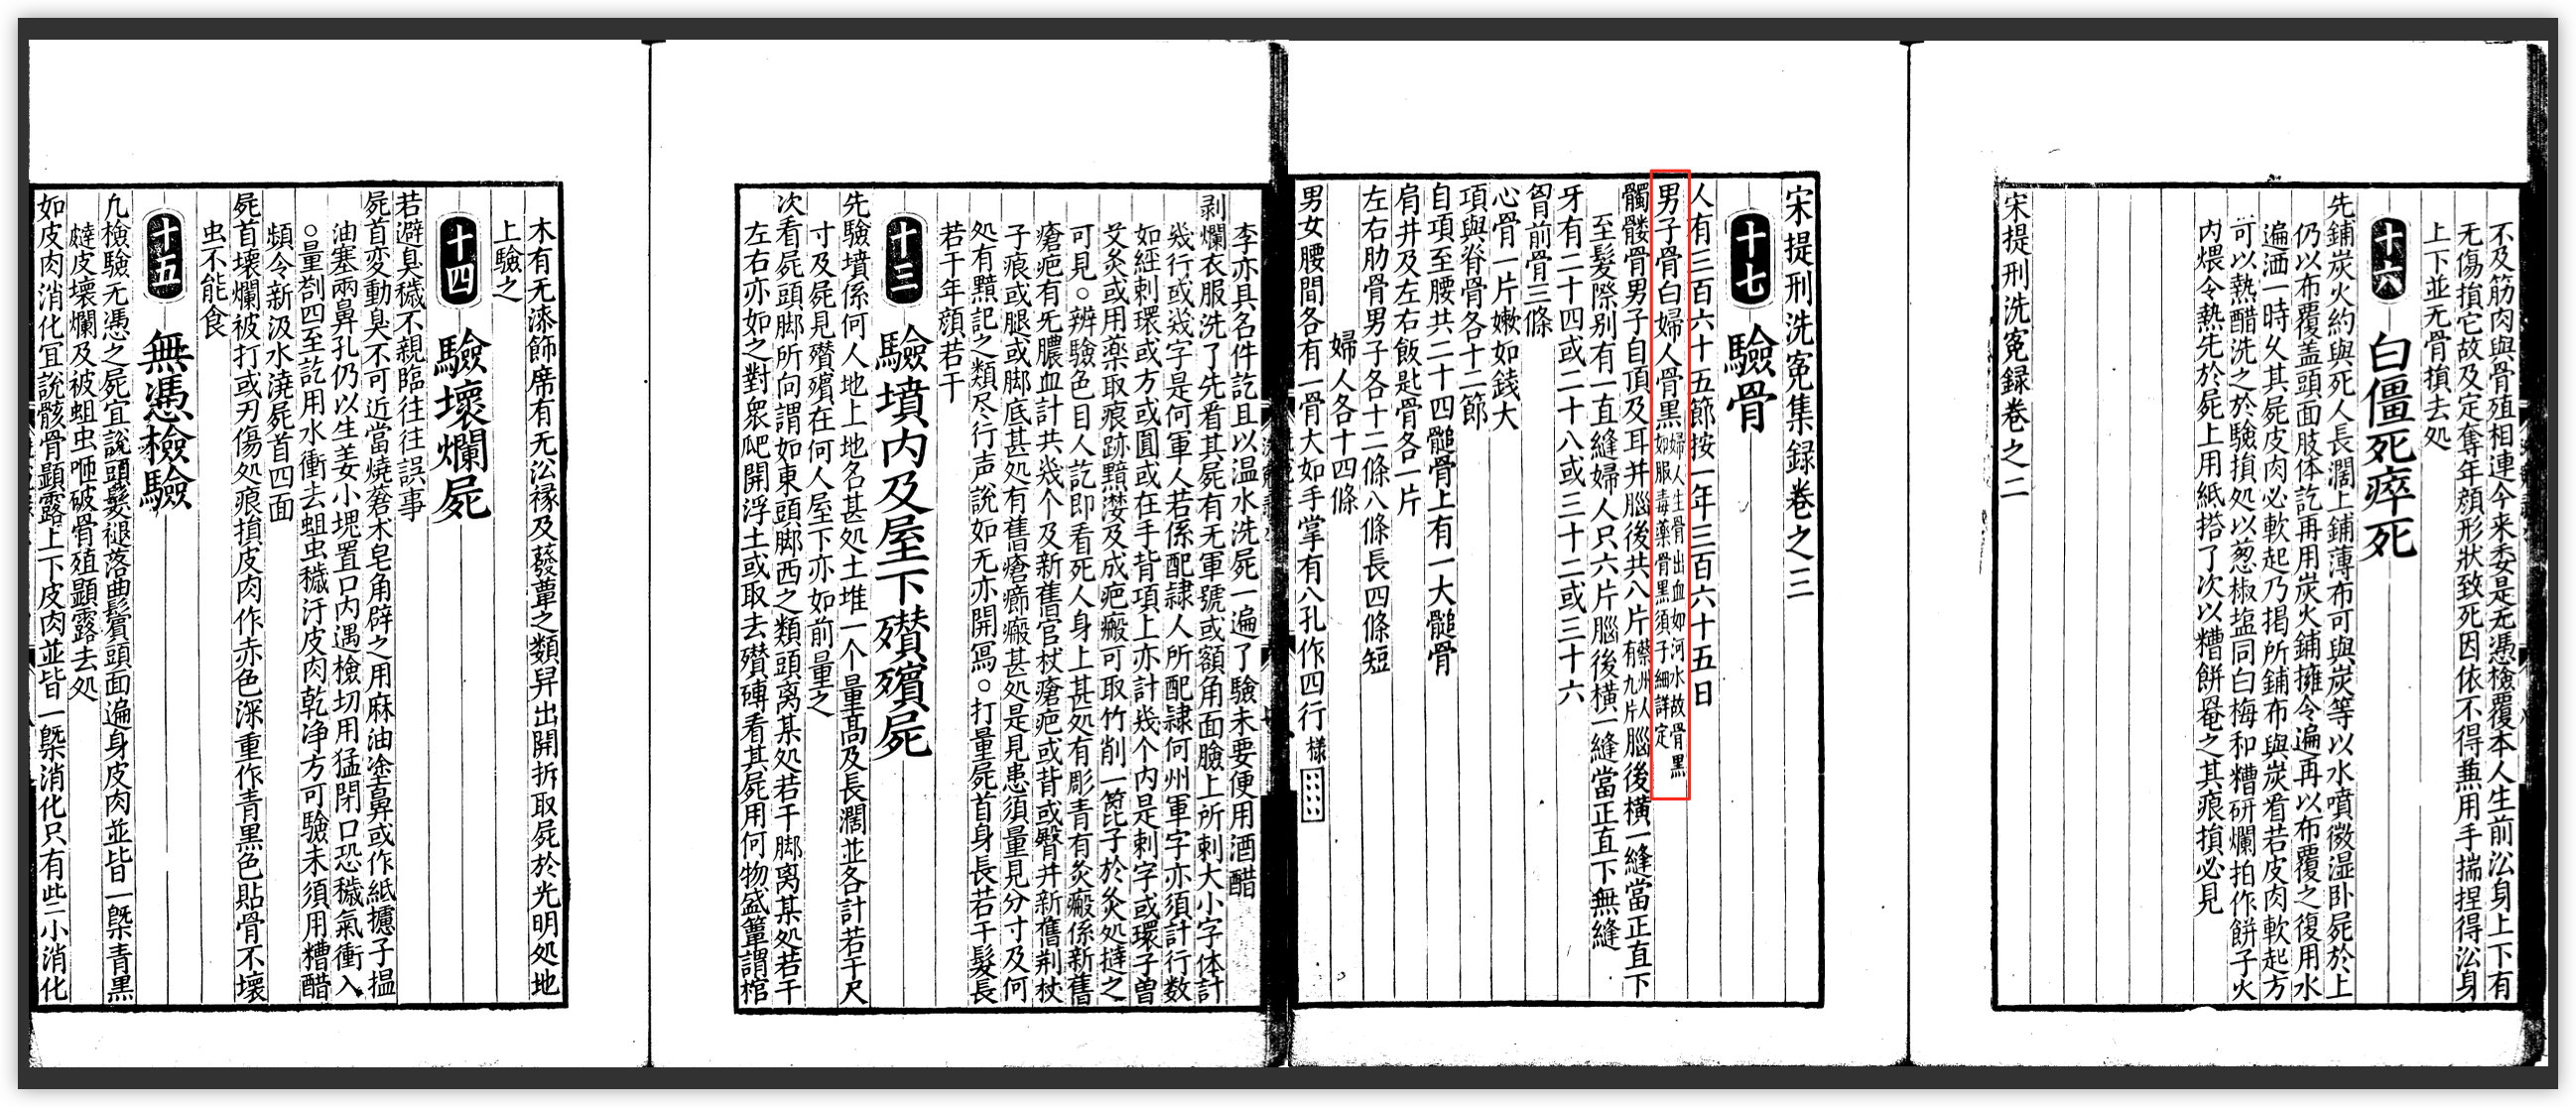 不及筋肉與骨殖相連今来委是无憑檢覆本人生前㳂身上下有
无傷損它故及定奪年顔形狀致死因依不得兼用手揣捏得㳂身
上下並无骨損去処
十六 白僵死瘁死
先鋪炭火約與死人長濶上鋪薄布可與炭等以水噴微湿卧屍於上
仍以布覆盖頭面肢体訖再用炭火鋪擁令遍再以布覆之復用水
遍洒一時乆其屍皮肉必軟起乃掲所鋪布與炭看若皮肉軟起方
可以熱醋洗之於驗損処以葱椒塩同白梅和糟研爛拍作餅子火
内煨令熱先於屍上用紙搭了次以糟餅罨之其痕損必見
宋提刑洗寃録卷之二
宋提刑洗寃集録卷之三
十七 驗骨
人有三百六十五節按一年三百六十五日
男子骨白婦人骨黑婦人生骨出血如河水故骨黑如服毒藥骨黑須子細詳定
髑髏骨男子自頂及耳并腦後共八片蔡州人有九片腦後橫一縫當正直下
至髮際别有一直縫婦人只六片腦後橫一縫當正直下無縫
牙有二十四或二十八或三十二或三十六
胷前骨三條
心骨一片嫩如錢大
項與脊骨各十二節
自項至腰共二十四䯝骨上有一大䯝骨
肩井及左右飯匙骨各一片
左右肋骨男子各十二條八條長四條短
婦人各十四條
男女腰間各有一骨大如手掌有八孔作四行樣
李亦具名件訖且以温水洗屍一遍了驗未要便用酒醋
剥爛衣服洗了先看其屍有无軍號或額角面臉上所刺大小字体計
㡬行或㡬字是何軍人若係配隷人所配隷何州軍字亦須計行数
如經刺環或方或圓或在手背項上亦計㡬个内是刺字或環子曽
艾灸或用藥取痕跡黯㶆及成疤瘢可取竹削一篦子於灸処撻之
可見○辨驗色目人訖即看死人身上甚処有彫青有灸瘢係新舊
瘡疤有无膿血計共㡬个及新舊官杖瘡疤或背或臀并新舊荆杖
子痕或腿或脚底甚処有舊瘡癤瘢甚処是見患須量見分寸及何
処有黯記之類尽行声說如无亦開寫○打量死首身長若干髮長
若干年顔若干
十三 驗墳内及屋下殯殯屍
先驗墳係何人地上地名甚処土堆一个量髙及長濶並各計若干尺
寸及屍見殯殯在何人屋下亦如前量之
次看屍頭脚所向謂如東頭脚西之類頭离某処若干脚离某処若干
左右亦如之對衆爬開浮土或取去殯磚看其屍用何物盛簟謂棺
木有无漆飾席有无㳂縁及蘞蕈之類舁出開拆取屍於光明処地
上驗之
十四 驗壞爛屍
若避臭穢不親臨往往誤事
屍首变動臭不可近當燒蒼术皂角辟之用麻油塗鼻或作紙攄子搵
油塞兩鼻孔仍以生姜小塊置口内遇檢切用猛閉口恐穢氣衝入
○量劄四至訖用水衝去蛆虫穢汙皮肉乾净方可驗未須用糟醋
頻令新汲水澆屍首四面
屍首壞爛被打或刃傷処痕損皮肉作赤色深重作青黑色貼骨不壞
虫不能食
十五 無憑檢驗
凢檢驗无憑之屍宜說頭髮褪落曲鬢頭面遍身皮肉並皆一槩青黑
皵皮壞爛及被蛆虫咂破骨殖顯露去処
如皮肉消化宜說骸骨顯露上下皮肉並皆一槩消化只有些二小消化